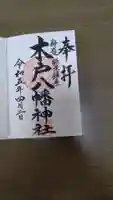 奉拝
木戸八幡神社
令和五年四月二日